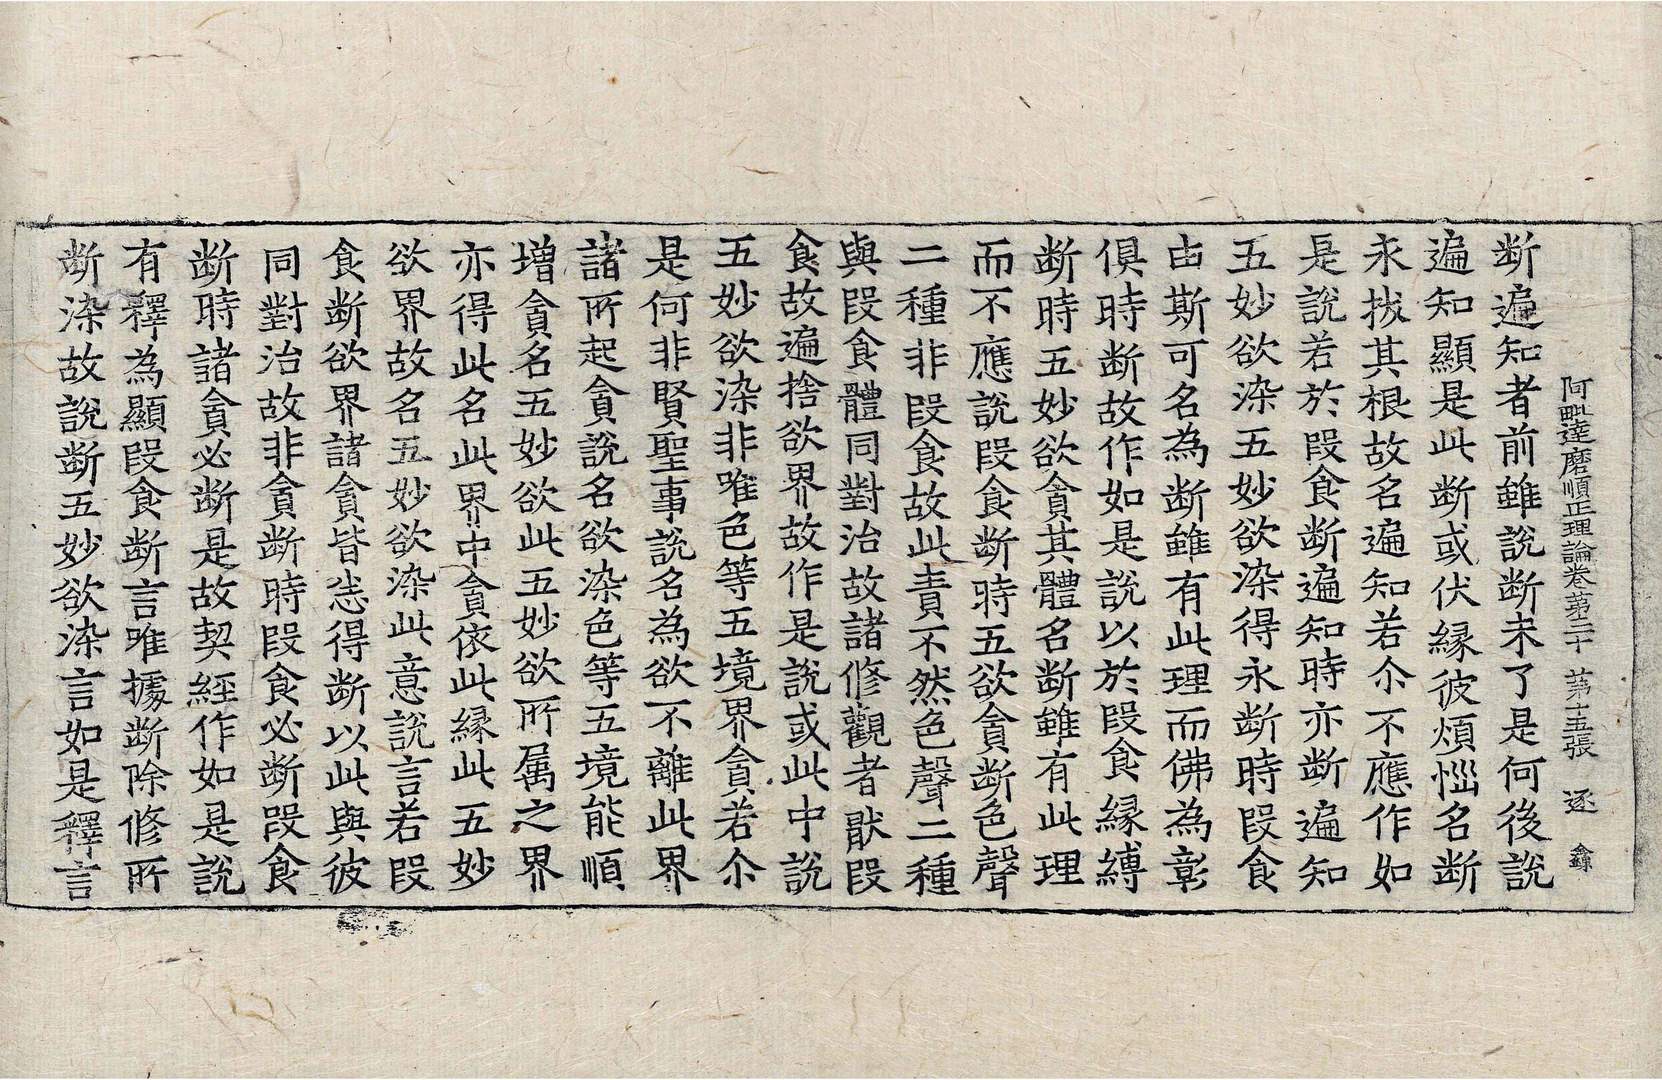 阿毗達磨順正理論卷苐三十 苐十五張 逐
断遍知者前雖說断未了是何後說
遍知顯是此断或伏縁彼煩惱名断
永拔其根故名遍知若尒不應作如
是說若於段食断遍知時亦断遍知
五妙欲染五妙欲染得永断時段食
由斯可名為断雖有此理而佛為彰
俱時断故作如是說以於段食縁縛
断時五妙欲貪其體名断雖有此理
而不應說段食断時五欲貪断色聲
二種非段食故此責不然色聲二種
與段食體同對治故諸修觀者猒段
食故遍捨欲界故作是說或此中說
五妙欲染非唯色等五境界貪若尒
是何非賢聖事說名為欲不離此界
諸所起貪說名欲染色等五境能順
增貪名五妙欲此五妙欲所属之界
亦得此名此界中貪依此縁此五妙
欲界故名五妙欲染此意說言若段
食断欲界諸貪皆悉得断以此與彼
同對治故非貪断時段食必断段食
断時諸貪必断是故契經作如是說
有釋為顯段食断言唯據断除修所
断染故說断五妙欲染言如是釋言